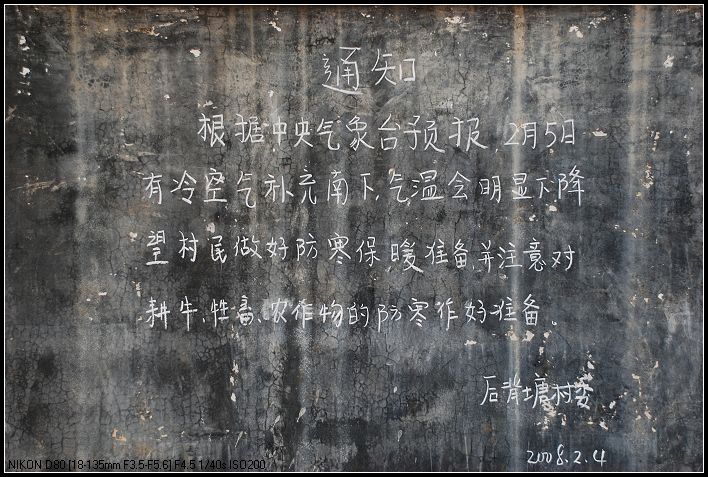 通知
根据中央气象台预报,2月5日
有冷空气补充南下,气温会明显下降
望村民做好防寒保,暖准备,并注意对
耕牛、牲畜、农作物的防寒作好准备。
后背塘村委
2008.2.4
NIKON D80 [18-135mm F3.5-F5.6] F4.5 1/40s ISO200